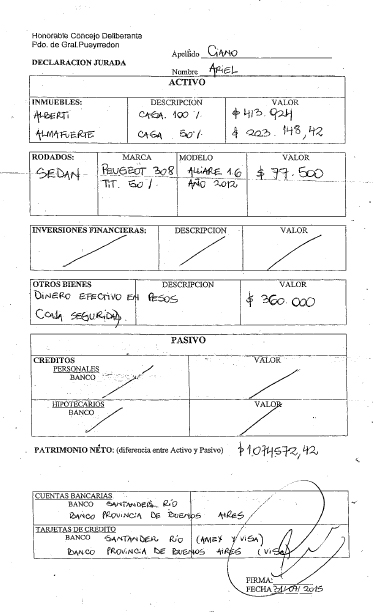 Honorable Concejo Deliberante
Pdo. de Gral.Pueyrredon
Apellido CIANO
DECLARACION JURADA
Nombre ARIEL
ACTIVO
INMUEBLES: DESCRIPCION VALOR
ALBERTI CASA. 100% $ 413.924
ALMAFUERTE CASA 50% $ 223.148,42
RODADOS: MARCA MODELO VALOR
SEDAN PEUGEOT 308 ALLURE 1.6 $ 77.500
TIT. 50% AÑO 2012
INVERSIONES FINANCIERAS: DESCRIPCION VALOR
OTROS BIENES DESCRIPCION VALOR
DINERO EFECTIVO EN PESOS $ 360.000
CAJA SEGURIDAD
PASIVO
CREDITOS VALOR
PERSONALES
BANCO
HIPOTECARIOS VALOR
BANCO
PATRIMONIO NÉTO: (diferencia entre Activo y Pasivo) $1074572,42
CUENTAS BANCARIAS
BANCO SANTANDER RÍO
BANCO PROVINCIA DE BUENOS AIRES
TARJETAS DE CREDITO
BANCO SANTANDER RÍO (AMEX Y VISA)
BANCO PROVINCIA DE BUENOS AIRES (VISA)
FIRMA:
FECHA 31/07/2015